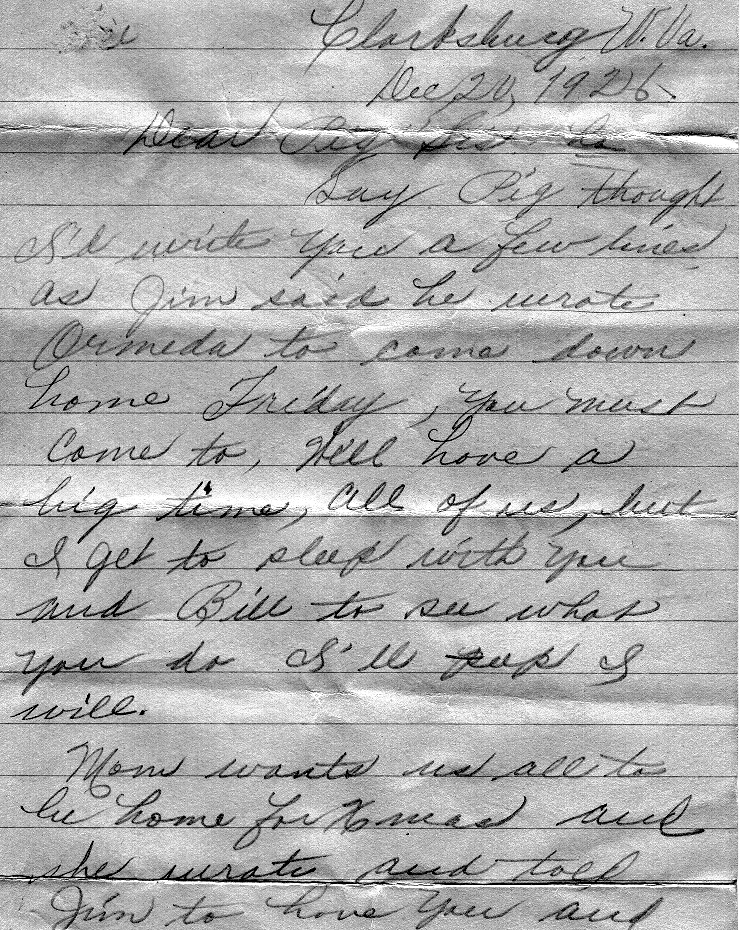 Clarksburg W. Va.
Dec 20, 1926.
Dear Pig Sis
Say Pig thought
I'd write you a few lines
as Jim said he wrote
Ormeda to come down
home Friday, you must
Come to, Will have a
big time, all of us, but
I get to sleep with you
and Bill to see what
you do I'll peep I
will.
Mom wants us all to
be home for Xmas and
she wrote and told
Jim to have you and